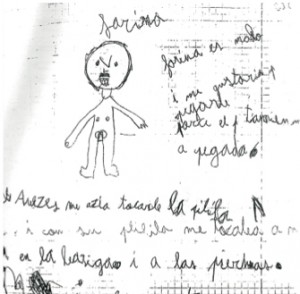 farina
farina es malo
i me gustaria
pegarle
el tamven
a pegado.
Avezes me azia tocarle la pilila
i con su pilila me tocaba a m
en la bariga i a las piernas.